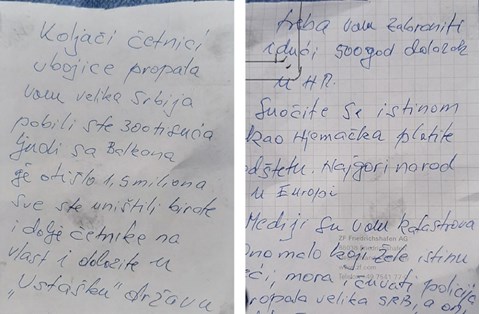 Koljači četnici
ubojice propala
vam velika Srbija
pobili ste 300tisuća
ljudi sa Balkana
otišlo 1,5miliona
Sve ste uništili birate
i dalje četnike na
vlast i dolazite u
„Ustašku" državu
treba vam zabraniti
idući 500god dolazak
u HR.
Suočite se istinom
kao Njemačka platite
odštetu. Najgori narod
u Europi
Mediji su vam katastrova
Ono malo koji žele istinu
reći, mora i čuvati policija
propala velika SRB, a on
ZF Friedrichshafen AG